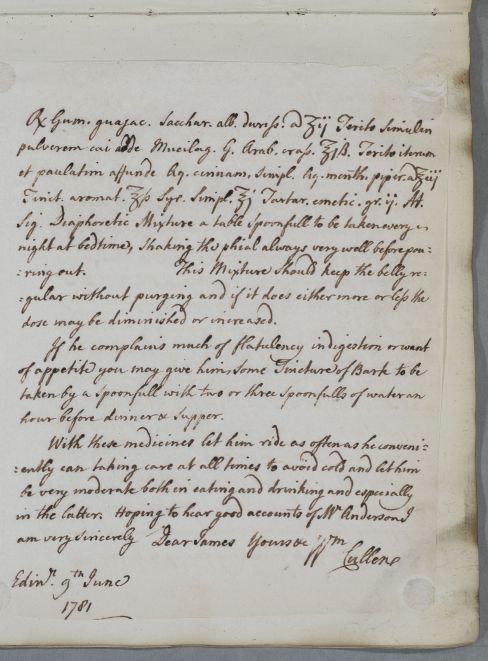 ℞ Gum. guajac. Sacchar. alb. duriss. a ʒij Terito simul in
pulverem cui adde Mucilag. G. Arab. crass. ℥jß. Terito iterum
et paulatim affunde Aq. cinnam. Simpl. Aq. menth. piper. a ℥iij
Tinct. aromat. ℥ß Syr. Simpl. ℥j Tartar. emetic. gr. ij. M.
Sig. Diaphoretic Mixture a table spoonfull to be taken every
night at bedtime, shaking the phial always very well before pou-
:ring out. This Mixture should keep the belly re-
:gular without purging and if it does either more or less the
dose may be diminished or increased.
If he complains much of flatulency indigestion or want
of appetite you may give him some Tincture of Bark to be
taken by a spoonfull with two or three spoonfulls of water an
hour before dinner & supper.
With these medicines let him ride as often as he conveni-
:ently can taking care at all times to avoid cold and let him
be very moderate both in eating and drinking and especially
in the latter. Hoping to hear good accounts of Mr Anderson I
am very sincerely Dear James Yours &c Wm
Cullen
Edinr. 9th June
1781